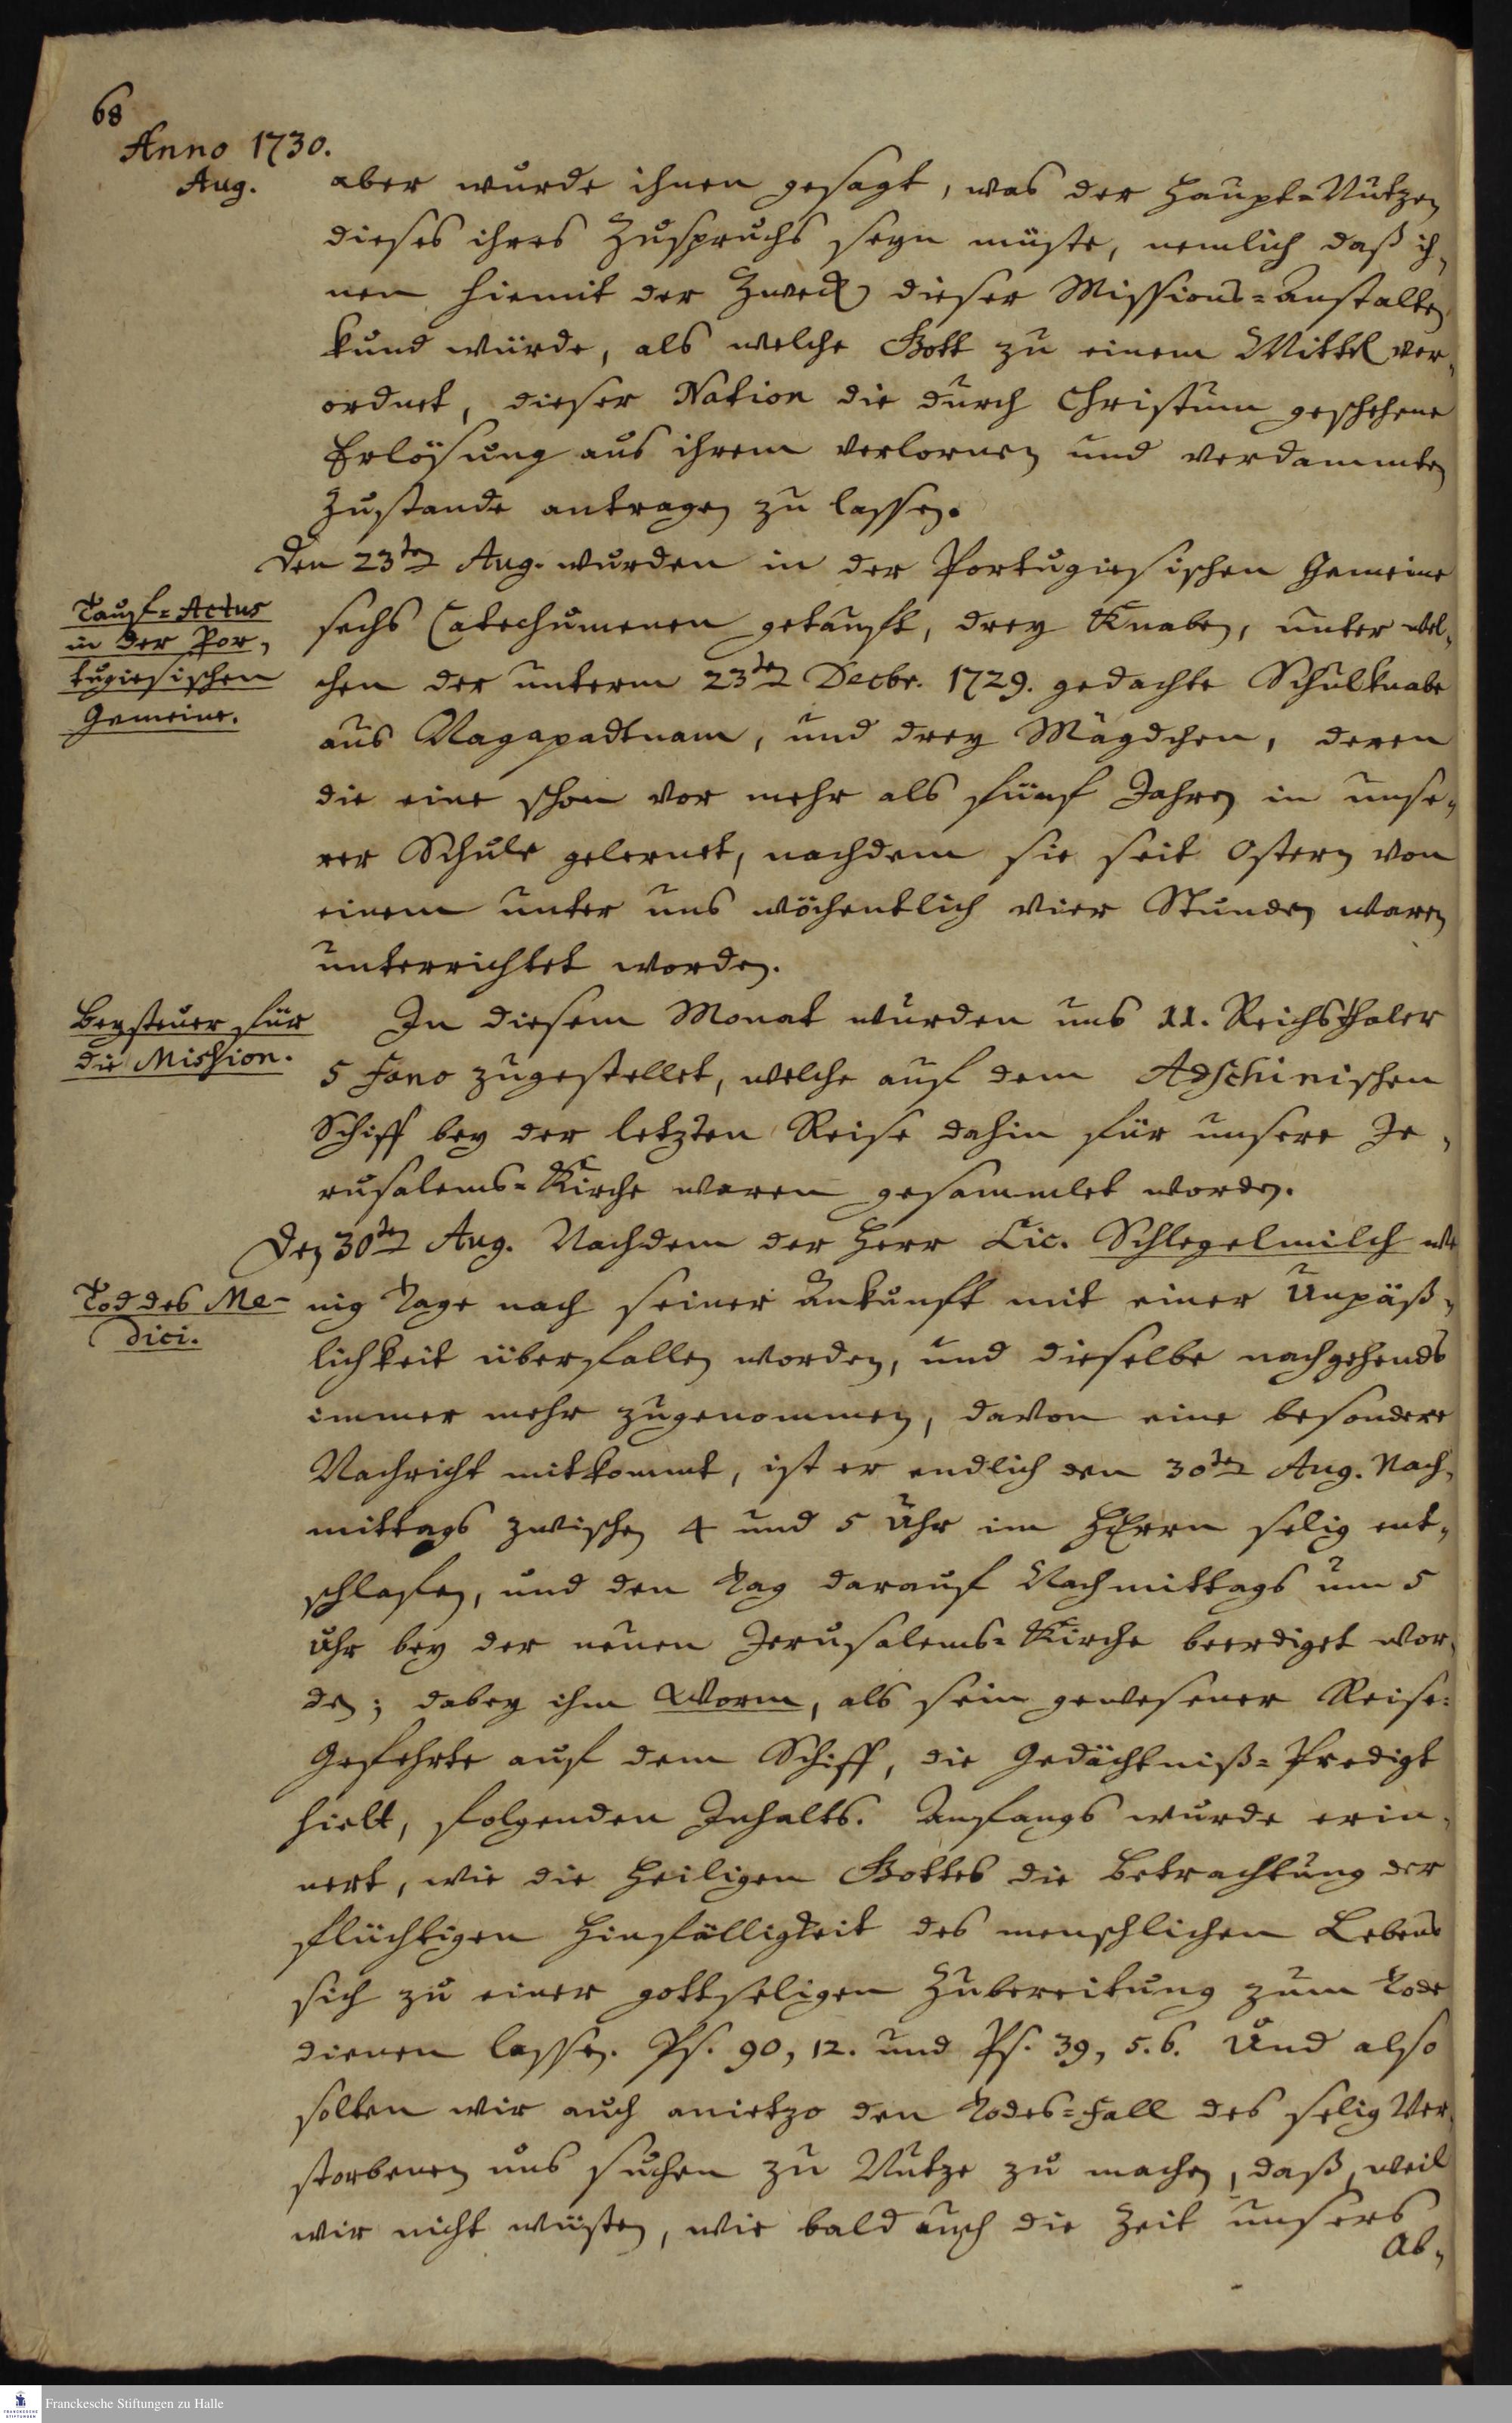 68
Anno 1730.
Aug.
aber wurde ihnen gesagt, was der Haupt=Nutzen
dieses ihres Zuspruchs seyn müste, nemlich daß ih,
nen hiemit der Zweck dieser Missions=Anstalten
kund würde, als welche Gott zu einem Mittel ver,
ordnet, dieser Nation die durch Christum geschehene
Erlösung aus ihrem verlornen und verdammten
Zustande antragen zu lassen.
Den 23ten Aug. wurden in der Portugiesischen Gemeine
Tauf=Actus
in der Por,
tugiesischen
Gemeine.
sechs Catechumenen getauft, drey Knaben, unter wel,
chen der unterm 23ten Decbr. 1729. gedachte Schulknabe
aus Nagapadtnam, und drey Mägdchen, deren
die eine schon vor mehr als fünf Jahren in unse,
rer Schule gelernet, nachdem sie seit Ostern von
einem unter uns wöchentlich vier Stunden waren
unterrichtet worden.
Beysteuer für
die Mission.
In diesem Monat wurden uns 11. Reichsthaler
5 Fano zugestellet, welche auf dem Adschinischen
Schiff bey der letzten Reise dahin für unsere Je,
rusalems=Kirche waren gesammlet worden.
Den 30ten Aug. Nachdem der Herr Lic. Schlegelmilch we
Tod des Me-
dici.
nig Tage nach seiner Ankunft mit einer Unpäß,
lichkeit überfallen worden, und dieselbe nachgehends
immer mehr zugenommen, davon eine besondere
Nachricht mitkommt, ist er endlich den 30ten Aug. Nach,
mittags zwischen 4 und 5 Uhr im HErrn selig ent,
schlafen, und den Tag darauf Nachmittags um 5
Uhr bey der neuen Jerusalems=Kirche beerdiget wor,
den; dabey ihm Worm, als sein gewesener Reise=
Gefehrte auf dem Schiff, die Gedächtniß=Predigt
hielt, folgenden Inhalts. Anfangs wurde erin,
nert, wie die Heiligen Gottes die Betrachtung der
flüchtigen Hinfälligkeit des menschlichen Lebens
sich zu einer gottseligen Zubereitung zum Tode
dienen lassen. Ps. 90, 12. und Ps. 39, 5.6. Und also
solten wir auch anietzo den Todes=Fall des selig Ver,
storbenen uns suchen zu Nutze zu machen, daß, weil
wir nicht wüsten, wie bald auch die Zeit unsers
Ab,
Franckesche Stiftungen zu Halle